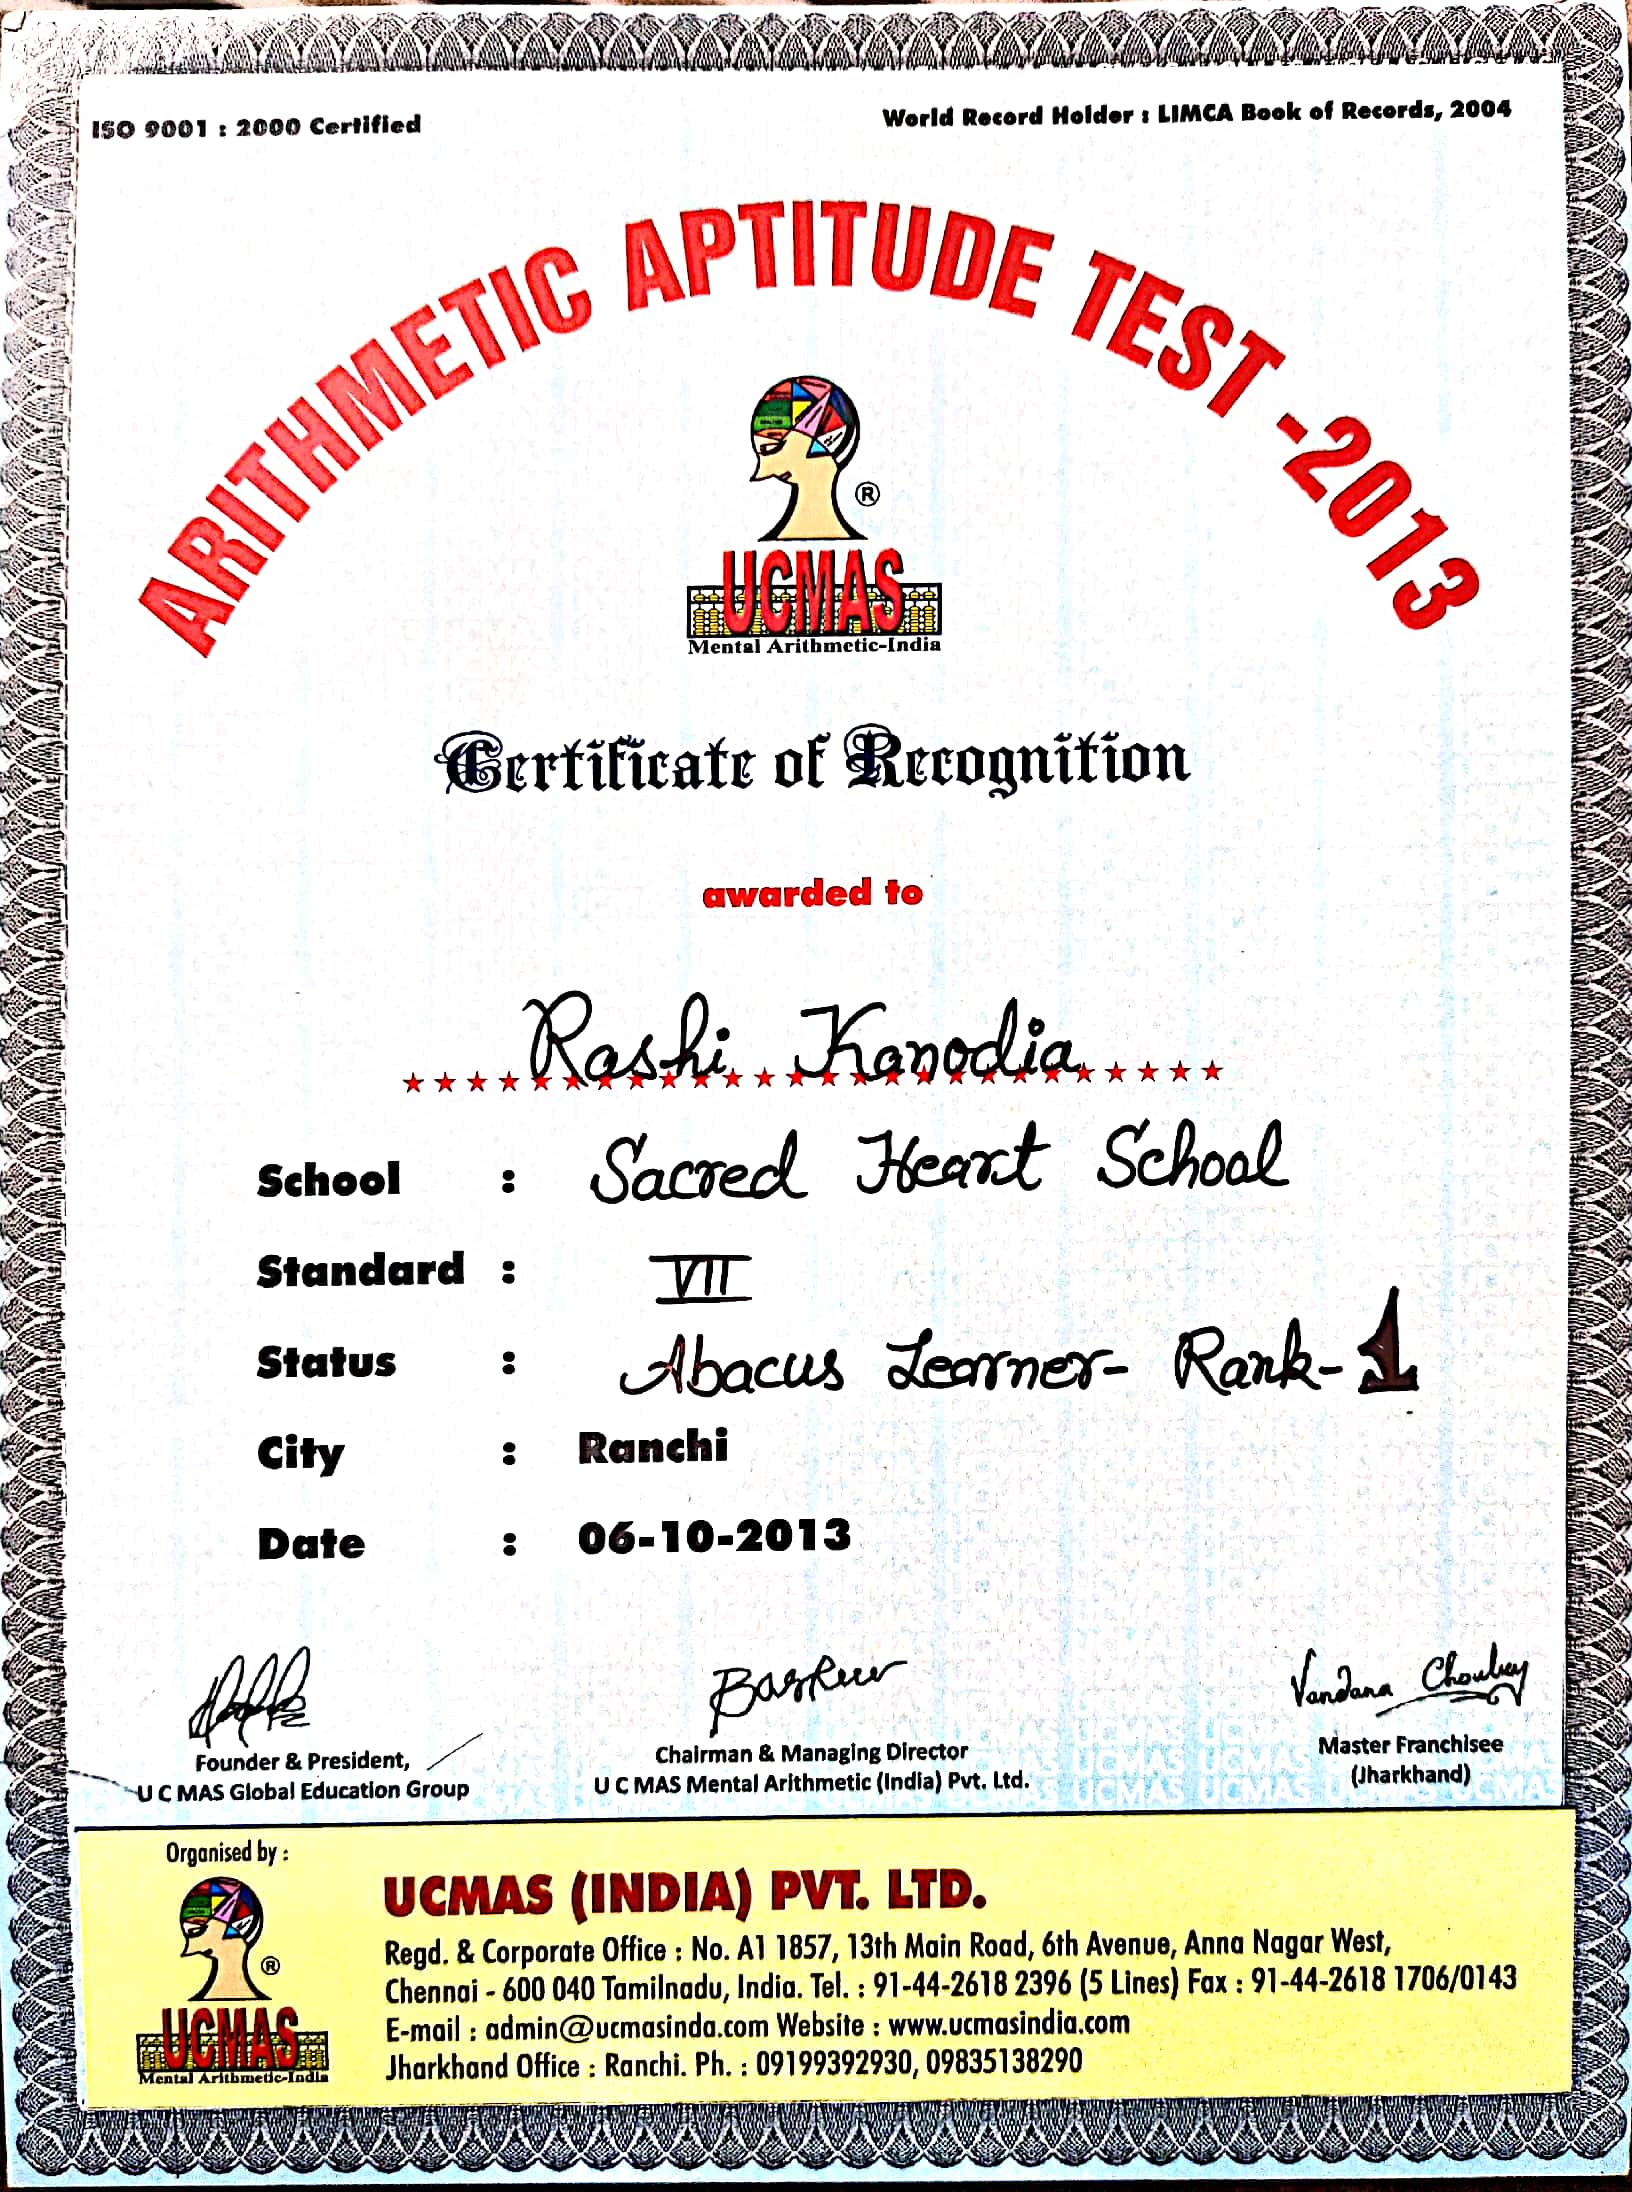 ISO 9001 : 2000 Certified
World Record Holder : LIMCA Book of Records, 2004
ARITHMETIC APTITUDE TEST -2013
®
UCMAS
Mental Arithmetic-India
Certificate of Recognition
awarded to
Rashi Kanodia
School : Sacred Heart School
Standard : VII
Status : Abacus Learner- Rank-1
City : Ranchi
Date : 06-10-2013
Baskar
Vandana Choubey
Founder & President,
U C MAS Global Education Group
Chairman & Managing Director
U C MAS Mental Arithmetic (India) Pvt. Ltd.
Master Franchisee
(Jharkhand)
Organised by :
®
UCMAS
Mental Arithmetic-India
UCMAS (INDIA) PVT. LTD.
Regd. & Corporate Office : No. A1 1857, 13th Main Road, 6th Avenue, Anna Nagar West,
Chennai - 600 040 Tamilnadu, India. Tel. : 91-44-2618 2396 (5 Lines) Fax : 91-44-2618 1706/0143
E-mail : admin@ucmasinda.com Website : www.ucmasindia.com
Jharkhand Office : Ranchi. Ph. : 09199392930, 09835138290